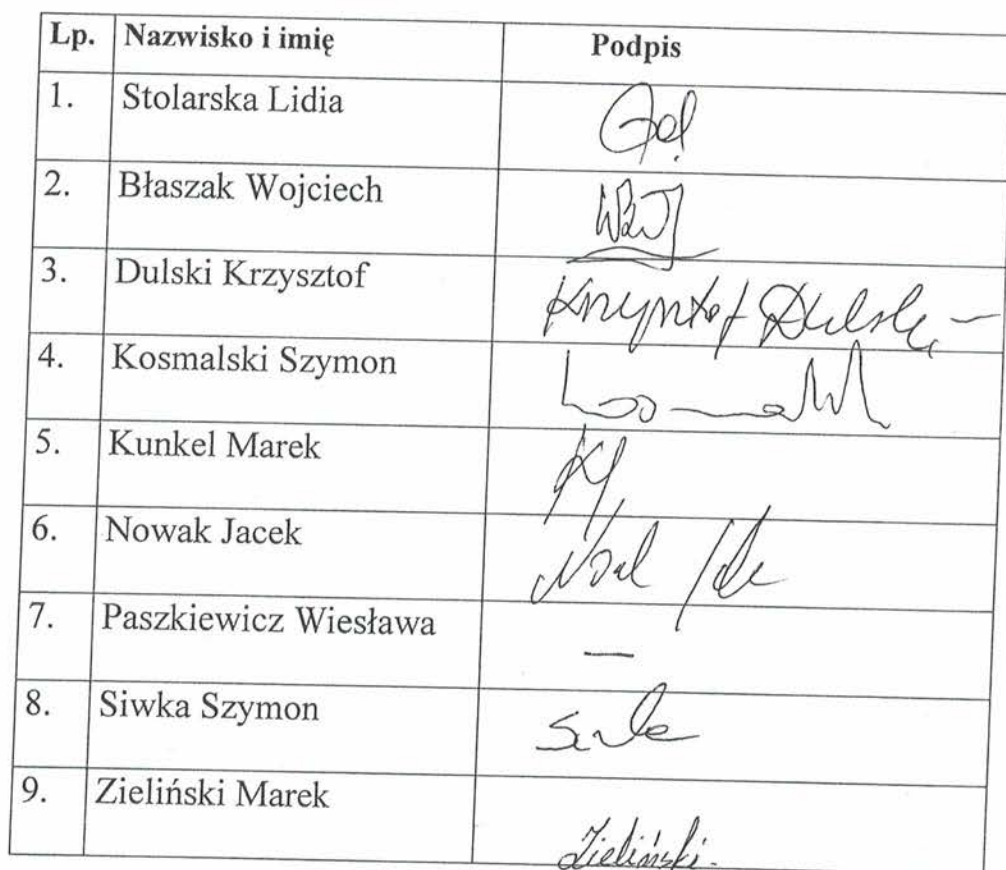 Lp. Nazwisko i imię Podpis
1. Stolarska Lidia
2. Błaszak Wojciech
3. Dulski Krzysztof Krzysztof Dulski
4. Kosmalski Szymon
5. Kunkel Marek
6. Nowak Jacek
7. Paszkiewicz Wiesława —
8. Siwka Szymon
9. Zieliński Marek Zieliński.